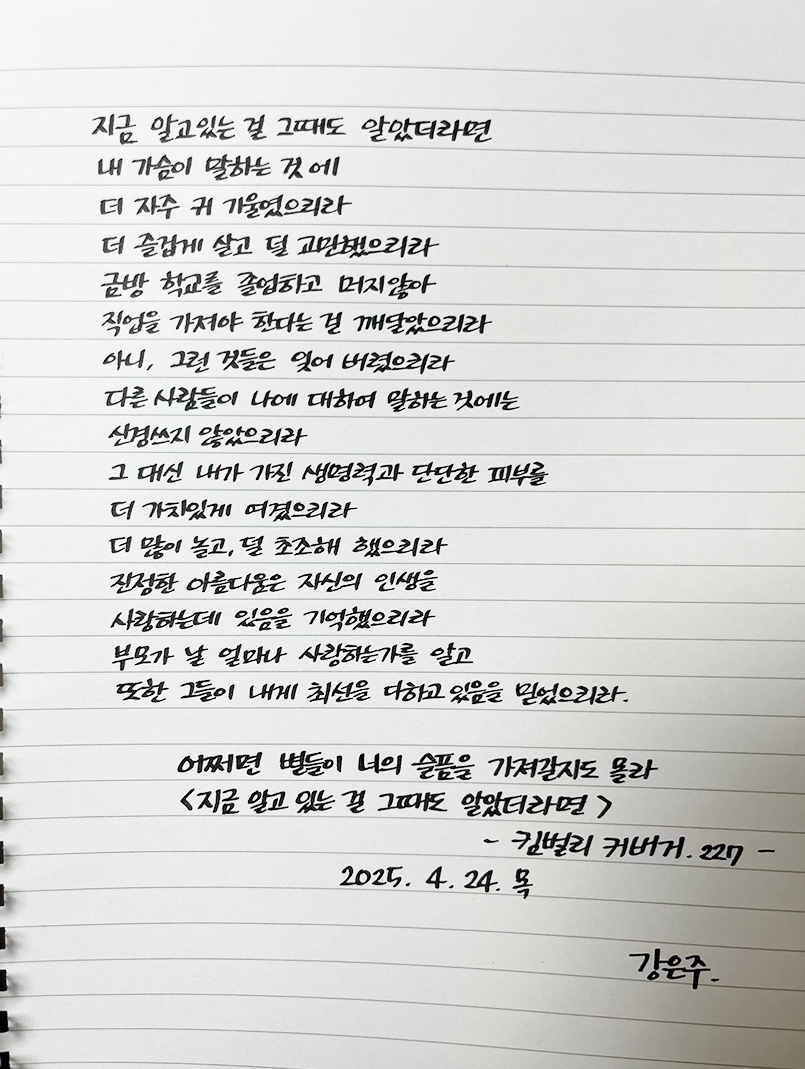 지금 알고있는 걸 그때도 알았더라면
내 가슴이 말하는 것에
더 자주 귀 기울였으리라
더 즐겁게 살고 덜 고민했으리라
금방 학교를 졸업하고 머지않아
직업을 가져야 한다는 걸 깨달았으리라
아니, 그런 것들은 잊어 버렸으리라
다른 사람들이 나에 대하여 말하는 것에는
신경쓰지 않았으리라
그 대신 내가 가진 생명력과 단단한 피부를
더 가치있게 여겼으리라
더 많이 놀고, 덜 초조해 했으리라
진정한 아름다움은 자신의 인생을
사랑하는데 있음을 기억했으리라
부모가 날 얼마나 사랑하는가를 알고
또한 그들이 내게 최선을 다하고 있음을 믿었으리라.
어쩌면 별들이 너의 슬픔을 가져갈지도 몰라
<지금 알고 있는 걸 그때도 알았더라면>
- 킴벌리 커버거. 227 -
2025. 4. 24. 목
강은주.